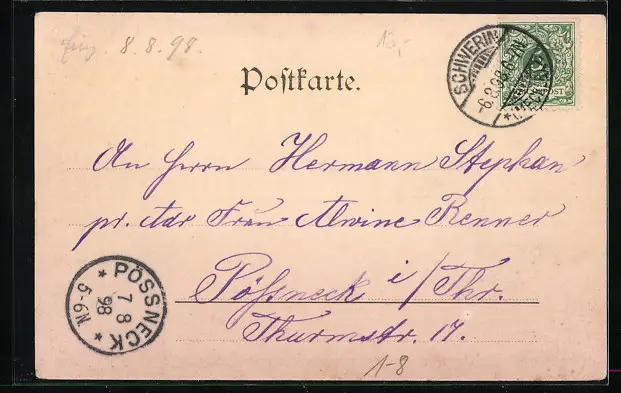 8.8.98.
13,-
Postkarte.
SCHWERIN
6.8.98.
(MECKLB)
An Herrn Hermann Stephan
pr. Adr Frau Alwine Renner
Pößneck i/Thr.
Thurmstr. 17.
PÖSSNECK
7 8
98
5-6N
1-8